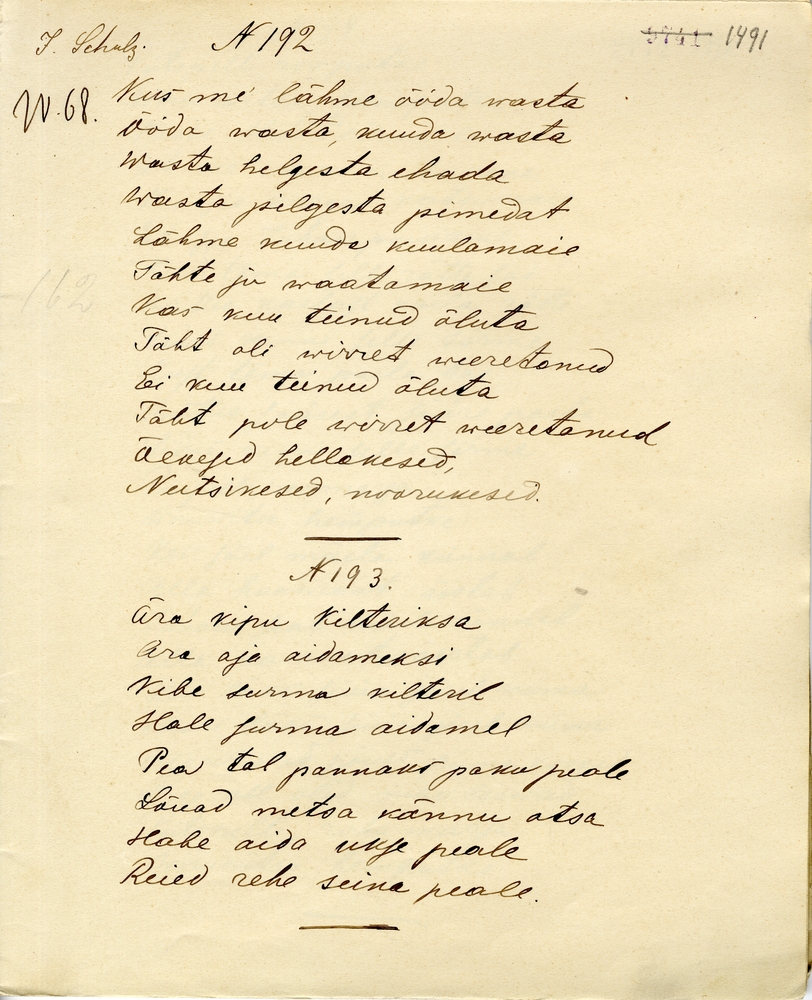 J. Schulz. N 192 1491
IV. 68.
Kus me lähme ööda wasta
Ööda wasta, kuuda wasta
Wasta helgesta ehada
Wasta pilgesta pimedat
Lähme kuuda kuulamaie
Tähte ju waatamaie
Kas kuu teinud õluta
Täht oli wirret weeretanud
Ei kuu teinud õluta
Täht pole wirret weeretanud
Õekesed hellakesed,
Neitsikesed, noorukesed.
N 193.
Ära kipu kilteriksa
Ära aja aidameksi
Kibe surma kilteril
Hale surma aidamel
Pea tal pannaks paku peale
Lõuad metsa kännu otsa
Habe aida ukse peale
Reied rehe seina peale.